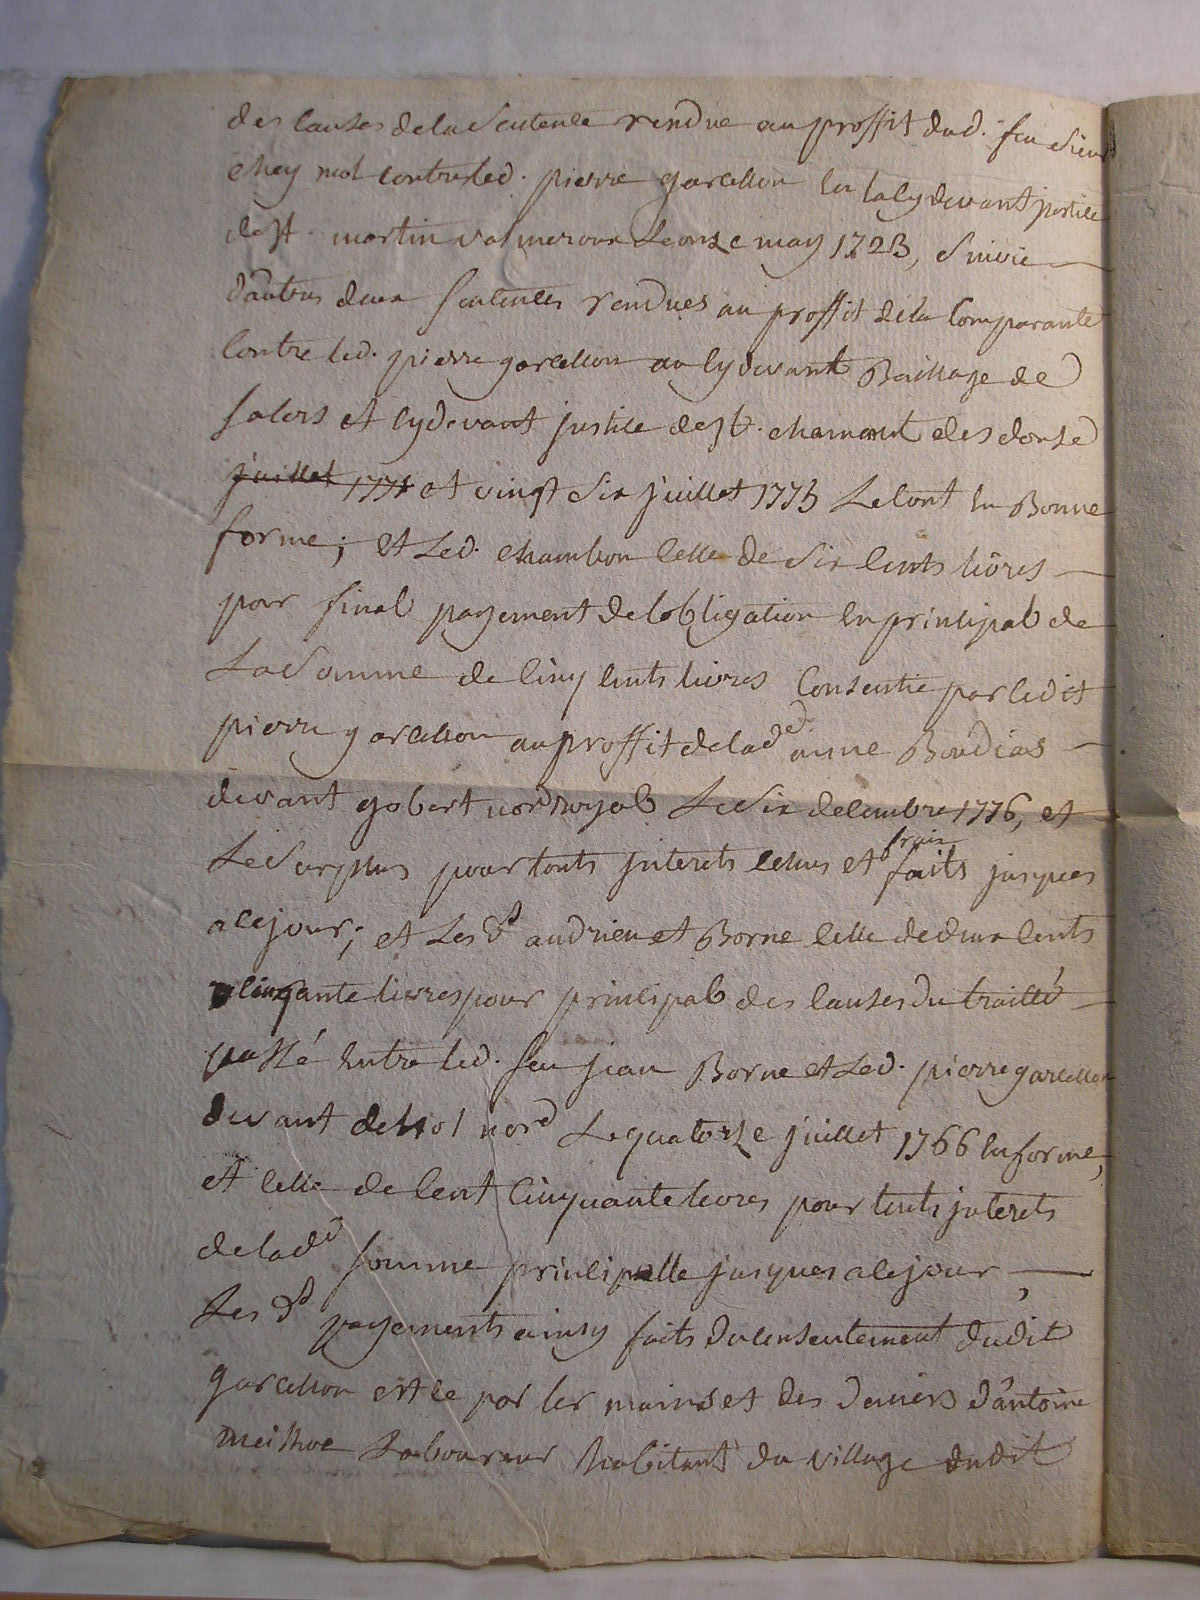 des causes de la Sentence rendue au proffit dud. feu Sieur
chey contre led. pierre garcellon en la cy devant justice
de st. martin valmeroux Le onze may 1723, Suivie
d'autres deux Sentences rendues au proffit de la Comparante
Contre led. pierre garcellon au cy devant Baillage de
Salers et cy devant justice de st. chamant des douze
juillet 1771 et vingt Six juillet 1773 Le tout en Bonne
forme; et Led. chambon celle de Six cents livres
pour final payement de lobligation en principal de
La Somme de cinq cents livres Consentie par ledit
pierre garcellon au proffit de lade anne Boudias
devant gobert nore royal Le Six decembre 1776, et
Le Surplus pour touts jnterets echus et frais faits jusques
a ce jour; et Les ds andrieu et Borne celle de deux cents
cinqante livres pour principal des causes du traitté
passé entre led. feu jean Borne et Led. pierre garcellon
devant nore Le quatorze juillet 1766 en forme,
et celle de cent Cinquante livres pour touts jnterets
de lade Somme principalle jusques a ce jour,
Les ds payements ainsy faits du consentement dudit
garcellon et ce par les mains et des deniers d'antoine
meilhoc Laboureur habitant du village dudit